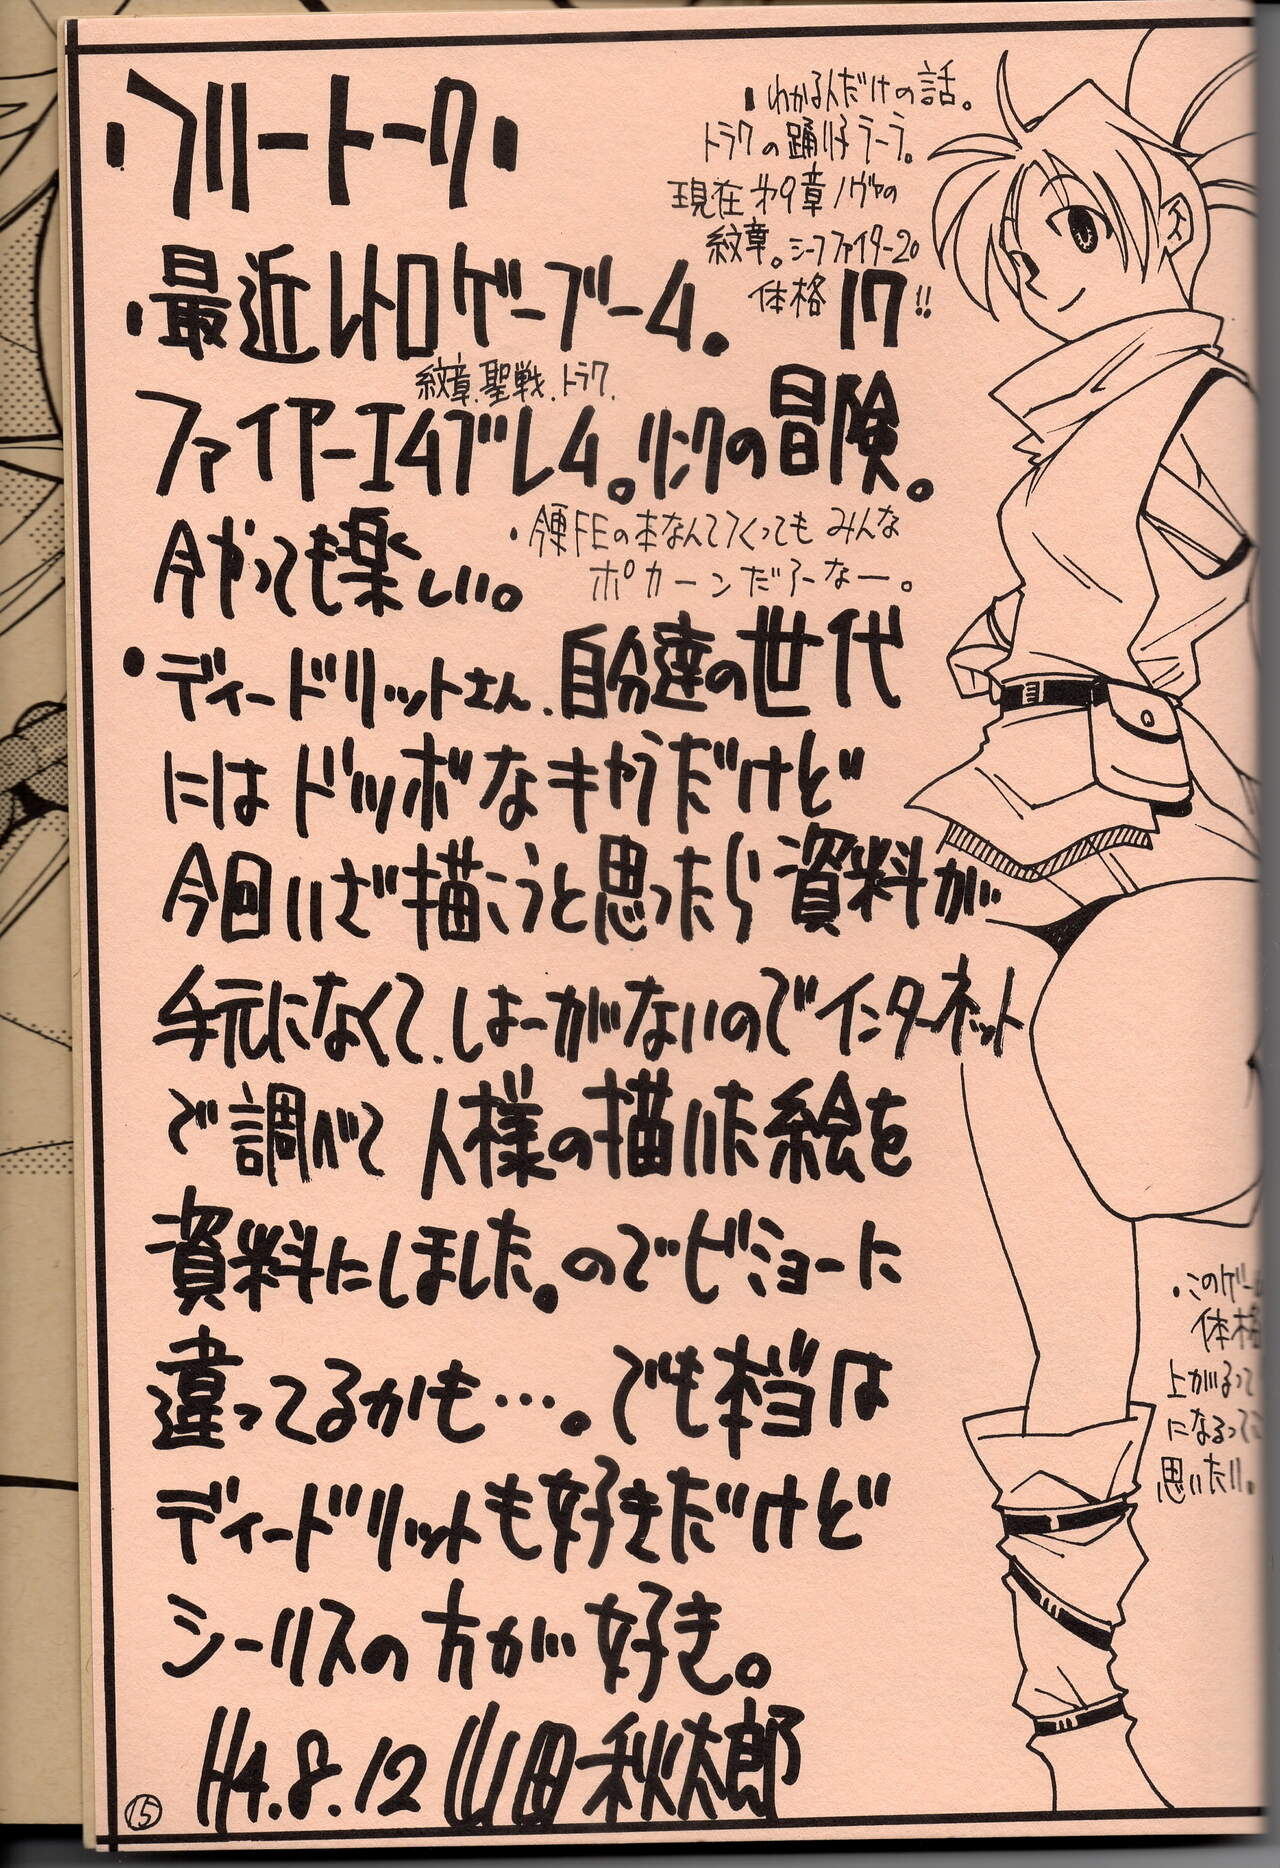 ・フリートーク・
・わかる人だけの話。
トラクの踊り子ラーラ。
現在 第9章ノヴァの
紋章。シーフファイター20
体格 17!!
・最近レトロゲーブーム。
紋章.聖戦.トラク.
ファイアーエムブレム。リンクの冒険。
今やっても楽しい。
・今更FEの本なんてつくっても みんな
ポカーンだろーなー。
・ディードリットさん.自分達の世代
にはドツボなキャラだけど
今回いざ描こうと思ったら資料が
手元になくて.しょーがないのでインターネット
で調べて人様の描いた絵を
資料にしました。のでビミョーに
違ってるかも…。でも本当は
ディードリットも好きだけど
シーリスの方が好き。
H4.8.12 山田秋太郎
・このゲーム
体格
上がるって
になるって
思いたい。
15